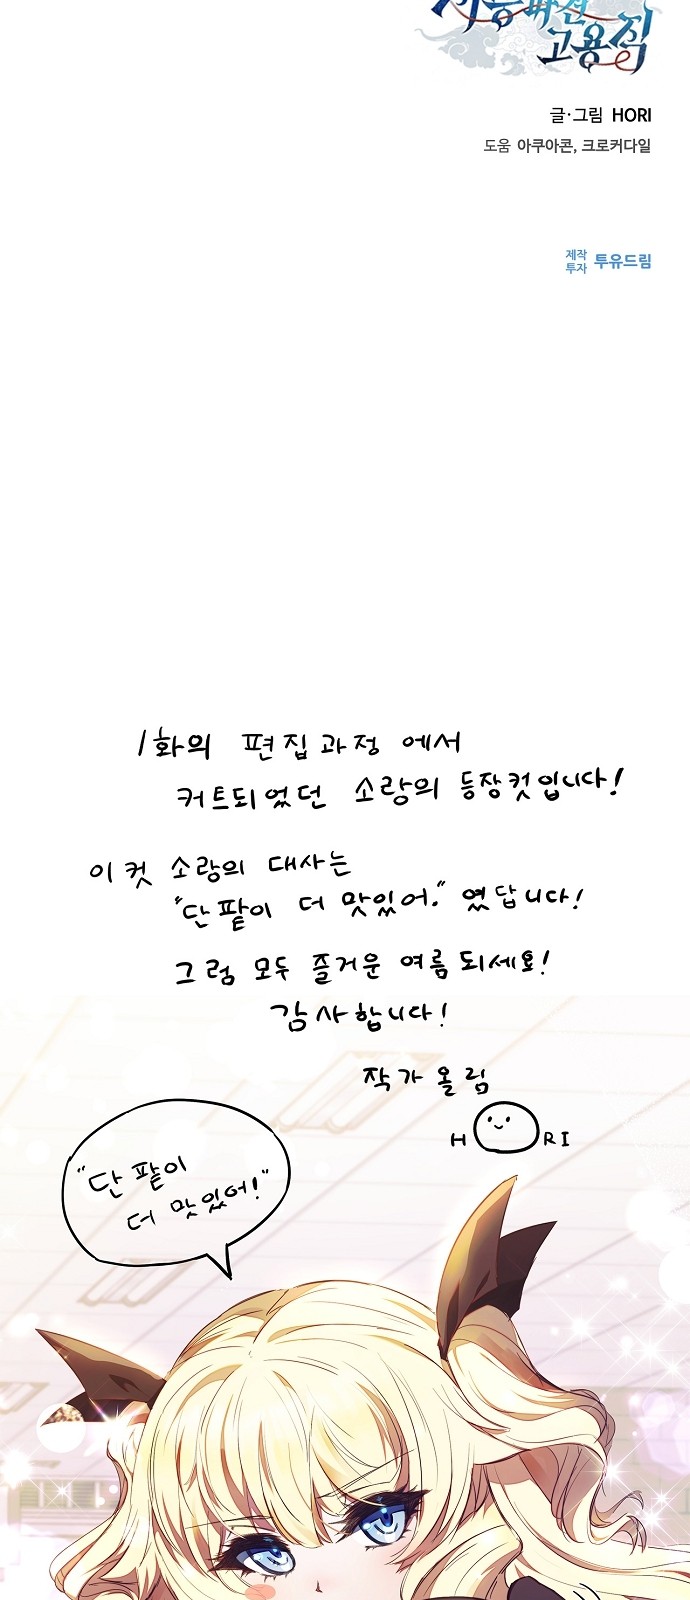 고용직
글·그림 HORI
도움 아쿠아콘, 크로커다일
제작
투자 투유드림
1화의 편집과정 에서
커트되었던 소랑의 등장컷입니다!
이 컷 소랑의 대사는
"단팥이 더 맛있어." 였답니다!
그럼 모두 즐거운 여름 되세요!
감사합니다!
작가 올림
HORI
"단팥이
더 맛있어!"